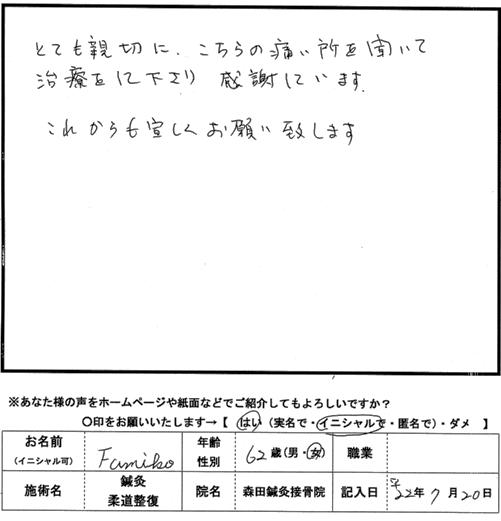 とても親切に、こちらの痛い所を聞いて
治療をして下さり 感謝しています。
これからも宜しくお願い致します
※あなた様の声をホームページや紙面などでご紹介してもよろしいですか？
〇印をお願いいたします→【 はい（実名で・イニシャルで・匿名で）・ダメ 】
お名前（イニシャル可） Fumiko 年齢性別 62歳（男・女） 職業
施術名 鍼灸 柔道整復 院名 森田鍼灸接骨院 記入日 平22年7月20日